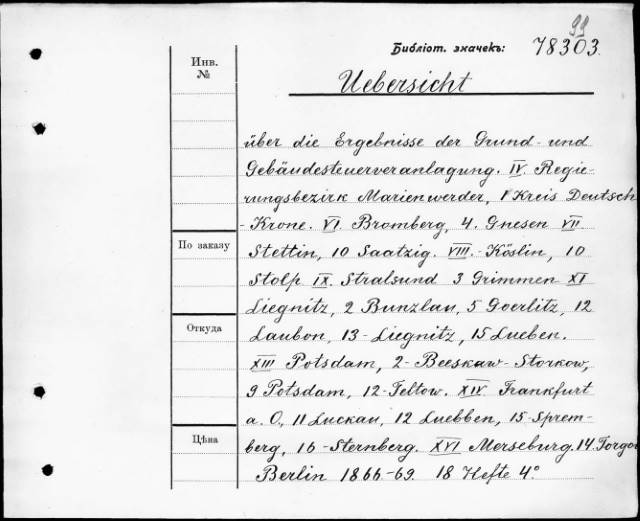 99
Библіот. значекъ: 78303.
Инв.
№
Uebersicht
über die Ergebnisse der Grund- und
Gebäudesteuerveranlagung. IV. Regie-
rungsbezirk Marienwerder, 1 Kreis Deutsch
-Krone. VI. Bromberg, 4. Gnesen VII
По заказу
Stettin, 10 Saatzig. VIII.-Köslin, 10
Stolp IX. Stralsund 3 Grimmen XI
Liegnitz, 2 Bunzlau, 5 Goerlitz, 12
Откуда
Laubon, 13-Liegnitz, 15 Lueben.
XIII Potsdam, 2-Beeskaw-Storkow,
9 Potsdam, 12-Teltow. XIV. Frankfurt
a. O, 11 Luckau, 12 Luebben, 15-Sprem-
Цѣна
berg, 16-Sternberg. XVI Merseburg. 14. Torgau
Berlin 1866-69. 18 Hefte 4°